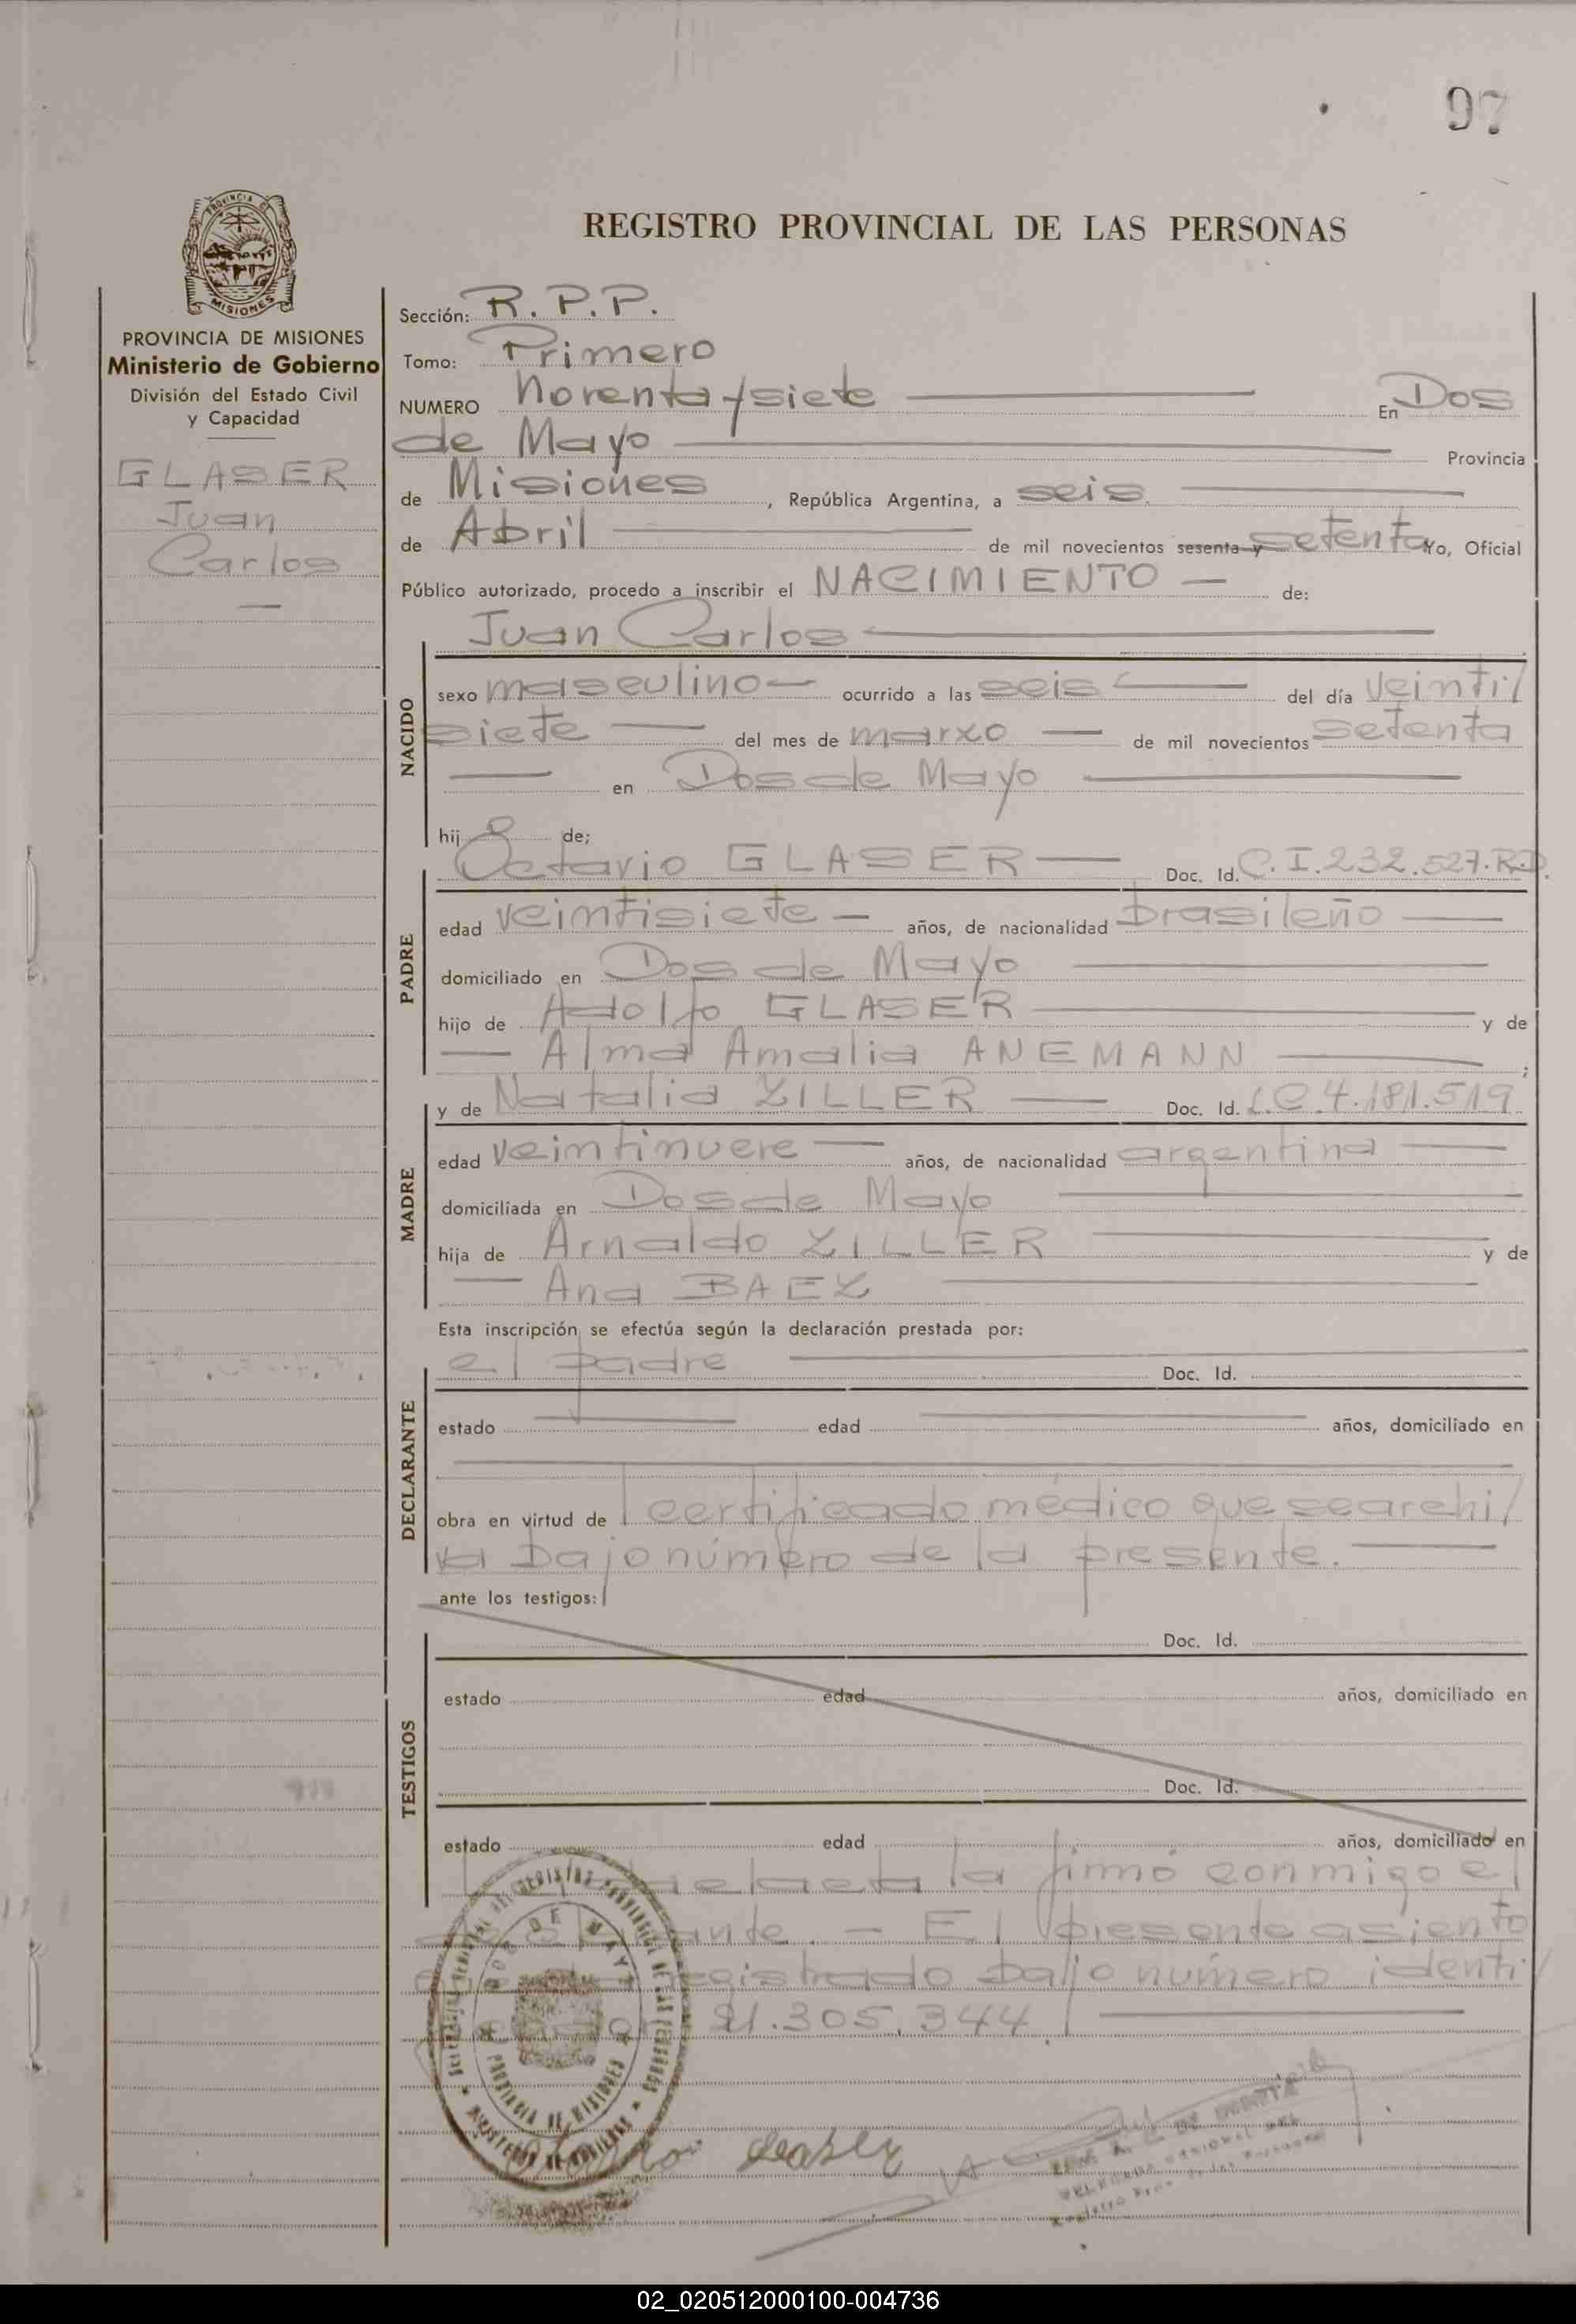 97
PROVINCIA DE
MISIONES
REGISTRO PROVINCIAL DE LAS PERSONAS
PROVINCIA DE MISIONES
Ministerio de Gobierno
División del Estado Civil
y Capacidad
GLASER
Juan
Carlos
Sección: R.P.P.
Tomo: Primero
NUMERO Noventa y siete En Dos
de Mayo Provincia
de Misiones, República Argentina, a seis
de Abril de mil novecientos sesenta y setenta Yo, Oficial
Público autorizado, procedo a inscribir el NACIMIENTO de:
Juan Carlos
NACIDO
sexo masculino ocurrido a las seis del día veinti/
siete del mes de marzo de mil novecientos setenta
en Dos de Mayo
hij o de;
Octavio GLASER Doc. Id. C.I.232.527.R.D.
PADRE
edad veintisiete años, de nacionalidad brasileño
domiciliado en Dos de Mayo
hijo de Adolfo GLASER y de
Alma Amalia ANEMANN ;
y de Natalia ZILLER Doc. Id. L.C 4.181.519
MADRE
edad veintinueve años, de nacionalidad argentina
domiciliada en Dos de Mayo
hija de Arnaldo ZILLER y de
Ana BAEZ
Esta inscripción se efectúa según la declaración prestada por:
el padre Doc. Id.
DECLARANTE
estado edad años, domiciliado en
obra en virtud de certificado médico que se archi/
va bajo número de la presente.
ante los testigos:
Doc. Id.
TESTIGOS
estado edad años, domiciliado en
Doc. Id.
estado edad años, domiciliado en
la firmó conmigo el
ante. - El presente asiento
registrado bajo número identi/
21.305.344
DOS DE MAYO
PROVINCIA DE MISIONES
02_020512000100-004736